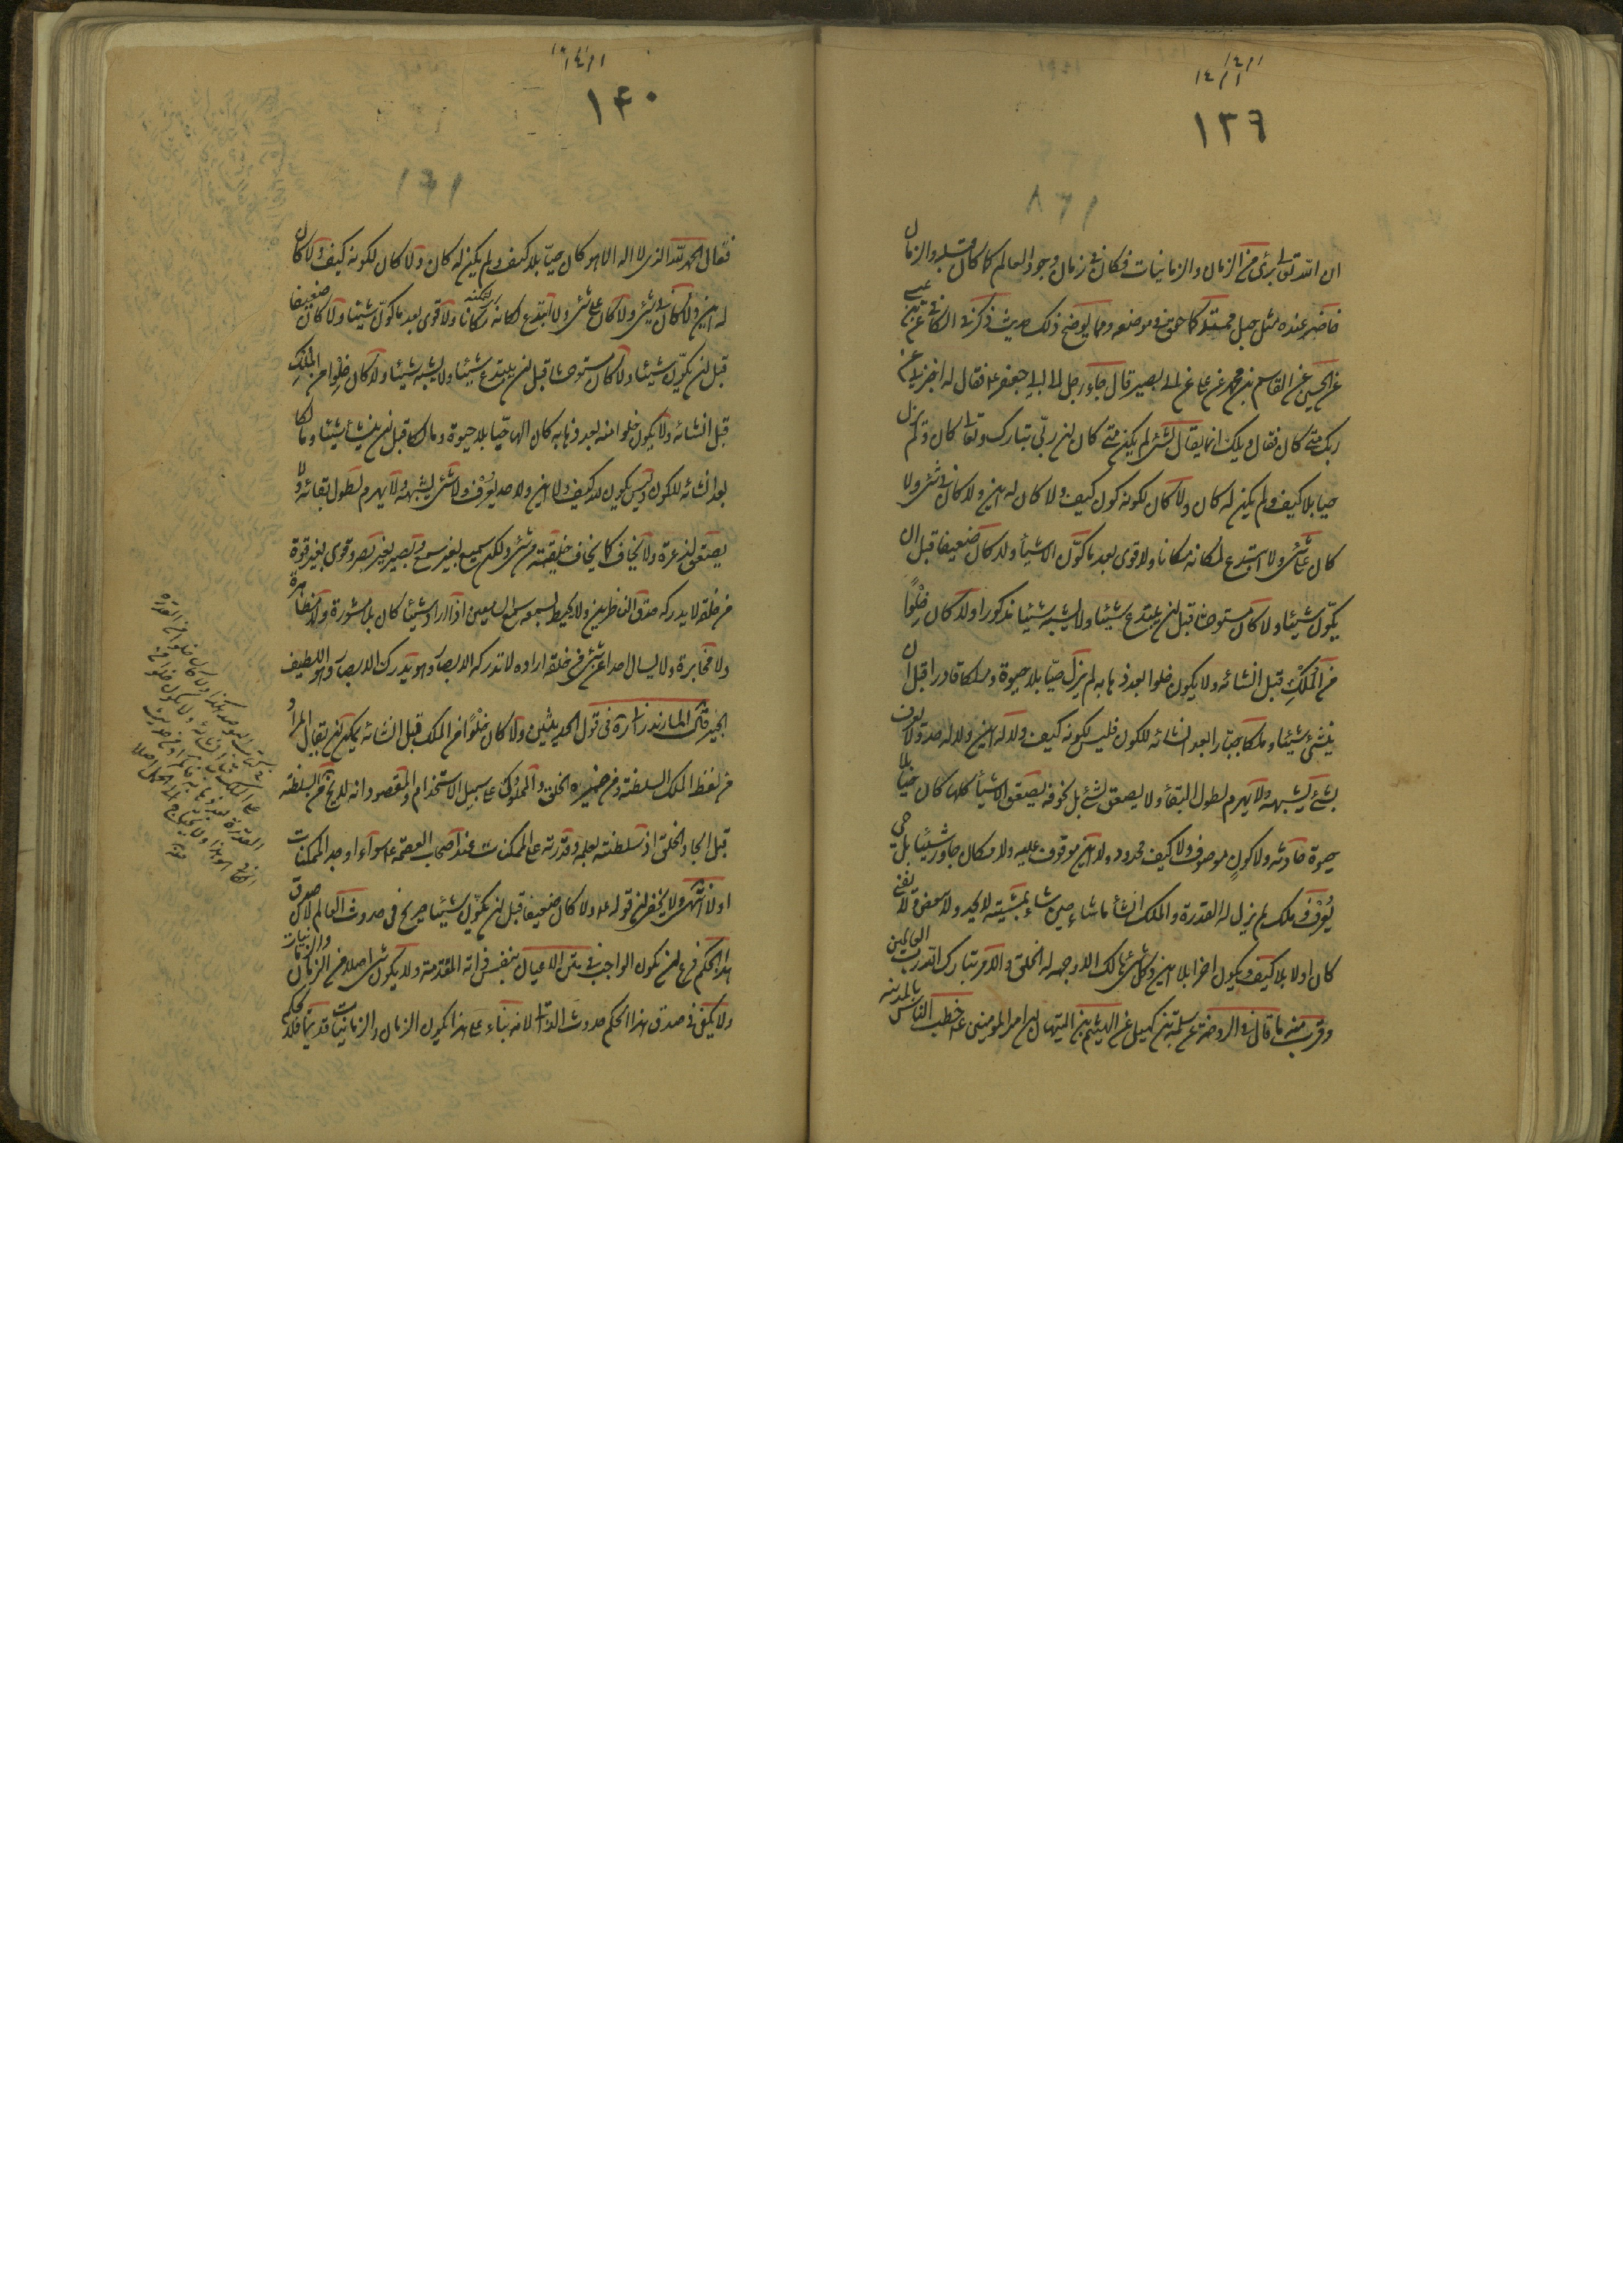 ١٤١١
١٤١١
١٣٩
١٦٨
ان الله تع برئ من الزمان والزمانيات فكان في زمان وجود العالم كما كان قبله والزمان
حاضر عنده مثل حبل ممتد كما حقق في موضعه ومما يوضح ذلك حديث ذكر في الكافي عن عدة
عن الحسين عن القاسم بن محمد عن علي عن ابي بصير قال جاء رجل الى ابي جعفر ع فقال له اخبرني عن
ربك متى كان فقال ويلك انما يقال لشئ لم يكن متى كان ان ربي تبارك وتعا كان ولم يزل
حيا بلا كيف ولم يكن له كان ولا كان لكونه كون كيف ولا كان له اين ولا كان في شئ ولا
كان على شئ ولا ابتدع لمكانه مكانا ولا قوى بعد ما كوّن الاشياء ولا كان ضعيفا قبل ان
يكوّن شيئا ولا كان مستوحشا قبل ان يبتدع شيئا ولا يشبه شيئا مذكورا ولا كان خِلْوًا
من المُلْكِ قبل انشائه ولا يكون خلوا بعد ذهابه لم يزل حيّا بلا حيوة وملكا قادرا قبل ان
ينشئ شيئا وملكا جبّارا بعد انشائه للكون فليس لكونه كيف ولا له اين ولا له حد ولا يعرف
بشئ يشبهه ولا يهرم لطول البقاء ولا يصعق لشئ بل لخوفه يصعق الاشياء كلها كان حيّا بلا
حيوة حادثة ولا كونٍ موصوف ولا كيف محدود ولا اين موقوف عليه ولا مكان جاور شيئًا بل حي
يُعْرَفُ وملك لم يزل له القدرة والملك انشأ ما شاء حين شاء بمشيته لا يحد ولا يبعض ولا يفنى
كان اولا بلا كيف ويكون اخرا بلا اين وكل شئ هالك الا وجهه له الخلق والامر تبارك الله رب العالمين
وقرب منه ما قال في الروضة عن سلمة بن كهيل عن الهيثم بن التيهان ان امير المؤمنين ع خطب الناس بالمدينة
١٤١١
١٤٠
١٦٩
فقال الحمد لله الذي لا اله الا هو كان حيّا بلا كيف ولم يكن له كان ولا كان لكونه كيف ولا كان
له اين ولا كان في شئ ولا كان على شئ ولا ابتدع لكانه مكانا ولا قوى بعد ما كوّن شيئا ولا كان ضعيفا
قبل ان يكوّن شيئا ولا كان مستوحشا قبل ان يبتدع شيئا ولا يشبه شيئا ولا كان خِلْوا من المُلْكِ
قبل انشائه ولا يكون خلوا منه بعد ذهابه كان الها حيّا بلا حيوة ومالكا قبل ان ينشأ شيئا ومالكا
بعد انشائه للكون وليس يكون لله كيف ولا اين ولا حد يُعْرَف ولا شئ يشبهه ولا يهرم لطول بقائه ولا
يصعق لذعرة ولا يخاف كما يخاف خليقته من شئ ولكن سميع بغير سمع وبصير بغير بصر وقوي بغير قوة
من خلقه لا يدركه حدق الناظرين ولا يحيط بسمعه سمع السامعين اذا اراد شيئا كان بلا مشورة ولا مظاهرة
ولا مخابرة ولا يسال احدا عن شئ من خلقه اراده لا تدركه الابصار وهو يدرك الابصار وهو اللطيف
الخبير قال المازندراني في قول الحديثين ولا كان خلوًا من الملك قبل انشائه يمكن ان يقال المراد
من لفظ الملك السلطنة ومن ضميره الخلق والمملوك على سبيل الاستخدام والمقصود انه لم يخل من السلطنة
قبل ايجاد الخلق اذ سلطنته بعلمه وقدرته على الممكنات عند اصحاب العصمة ع سواء اوجد الممكنات
اولا انتهى ولا يخفى ان قوله ع ولا كان ضعيفا قبل ان يكوّن شيئا صريح في حدوث العالم لان صدق
هذا الحكم فرع ان يكون الواجب في متن الاعيان بنفس ذاته المقدمة ولا يكون شئ اصلا من الزمان والزمانيات
ولا يكفي في صدق هذا الحكم حدوث الذاتي لانه بناء على هذا يكون الزمان والزمانيات قديما فلا يحكم